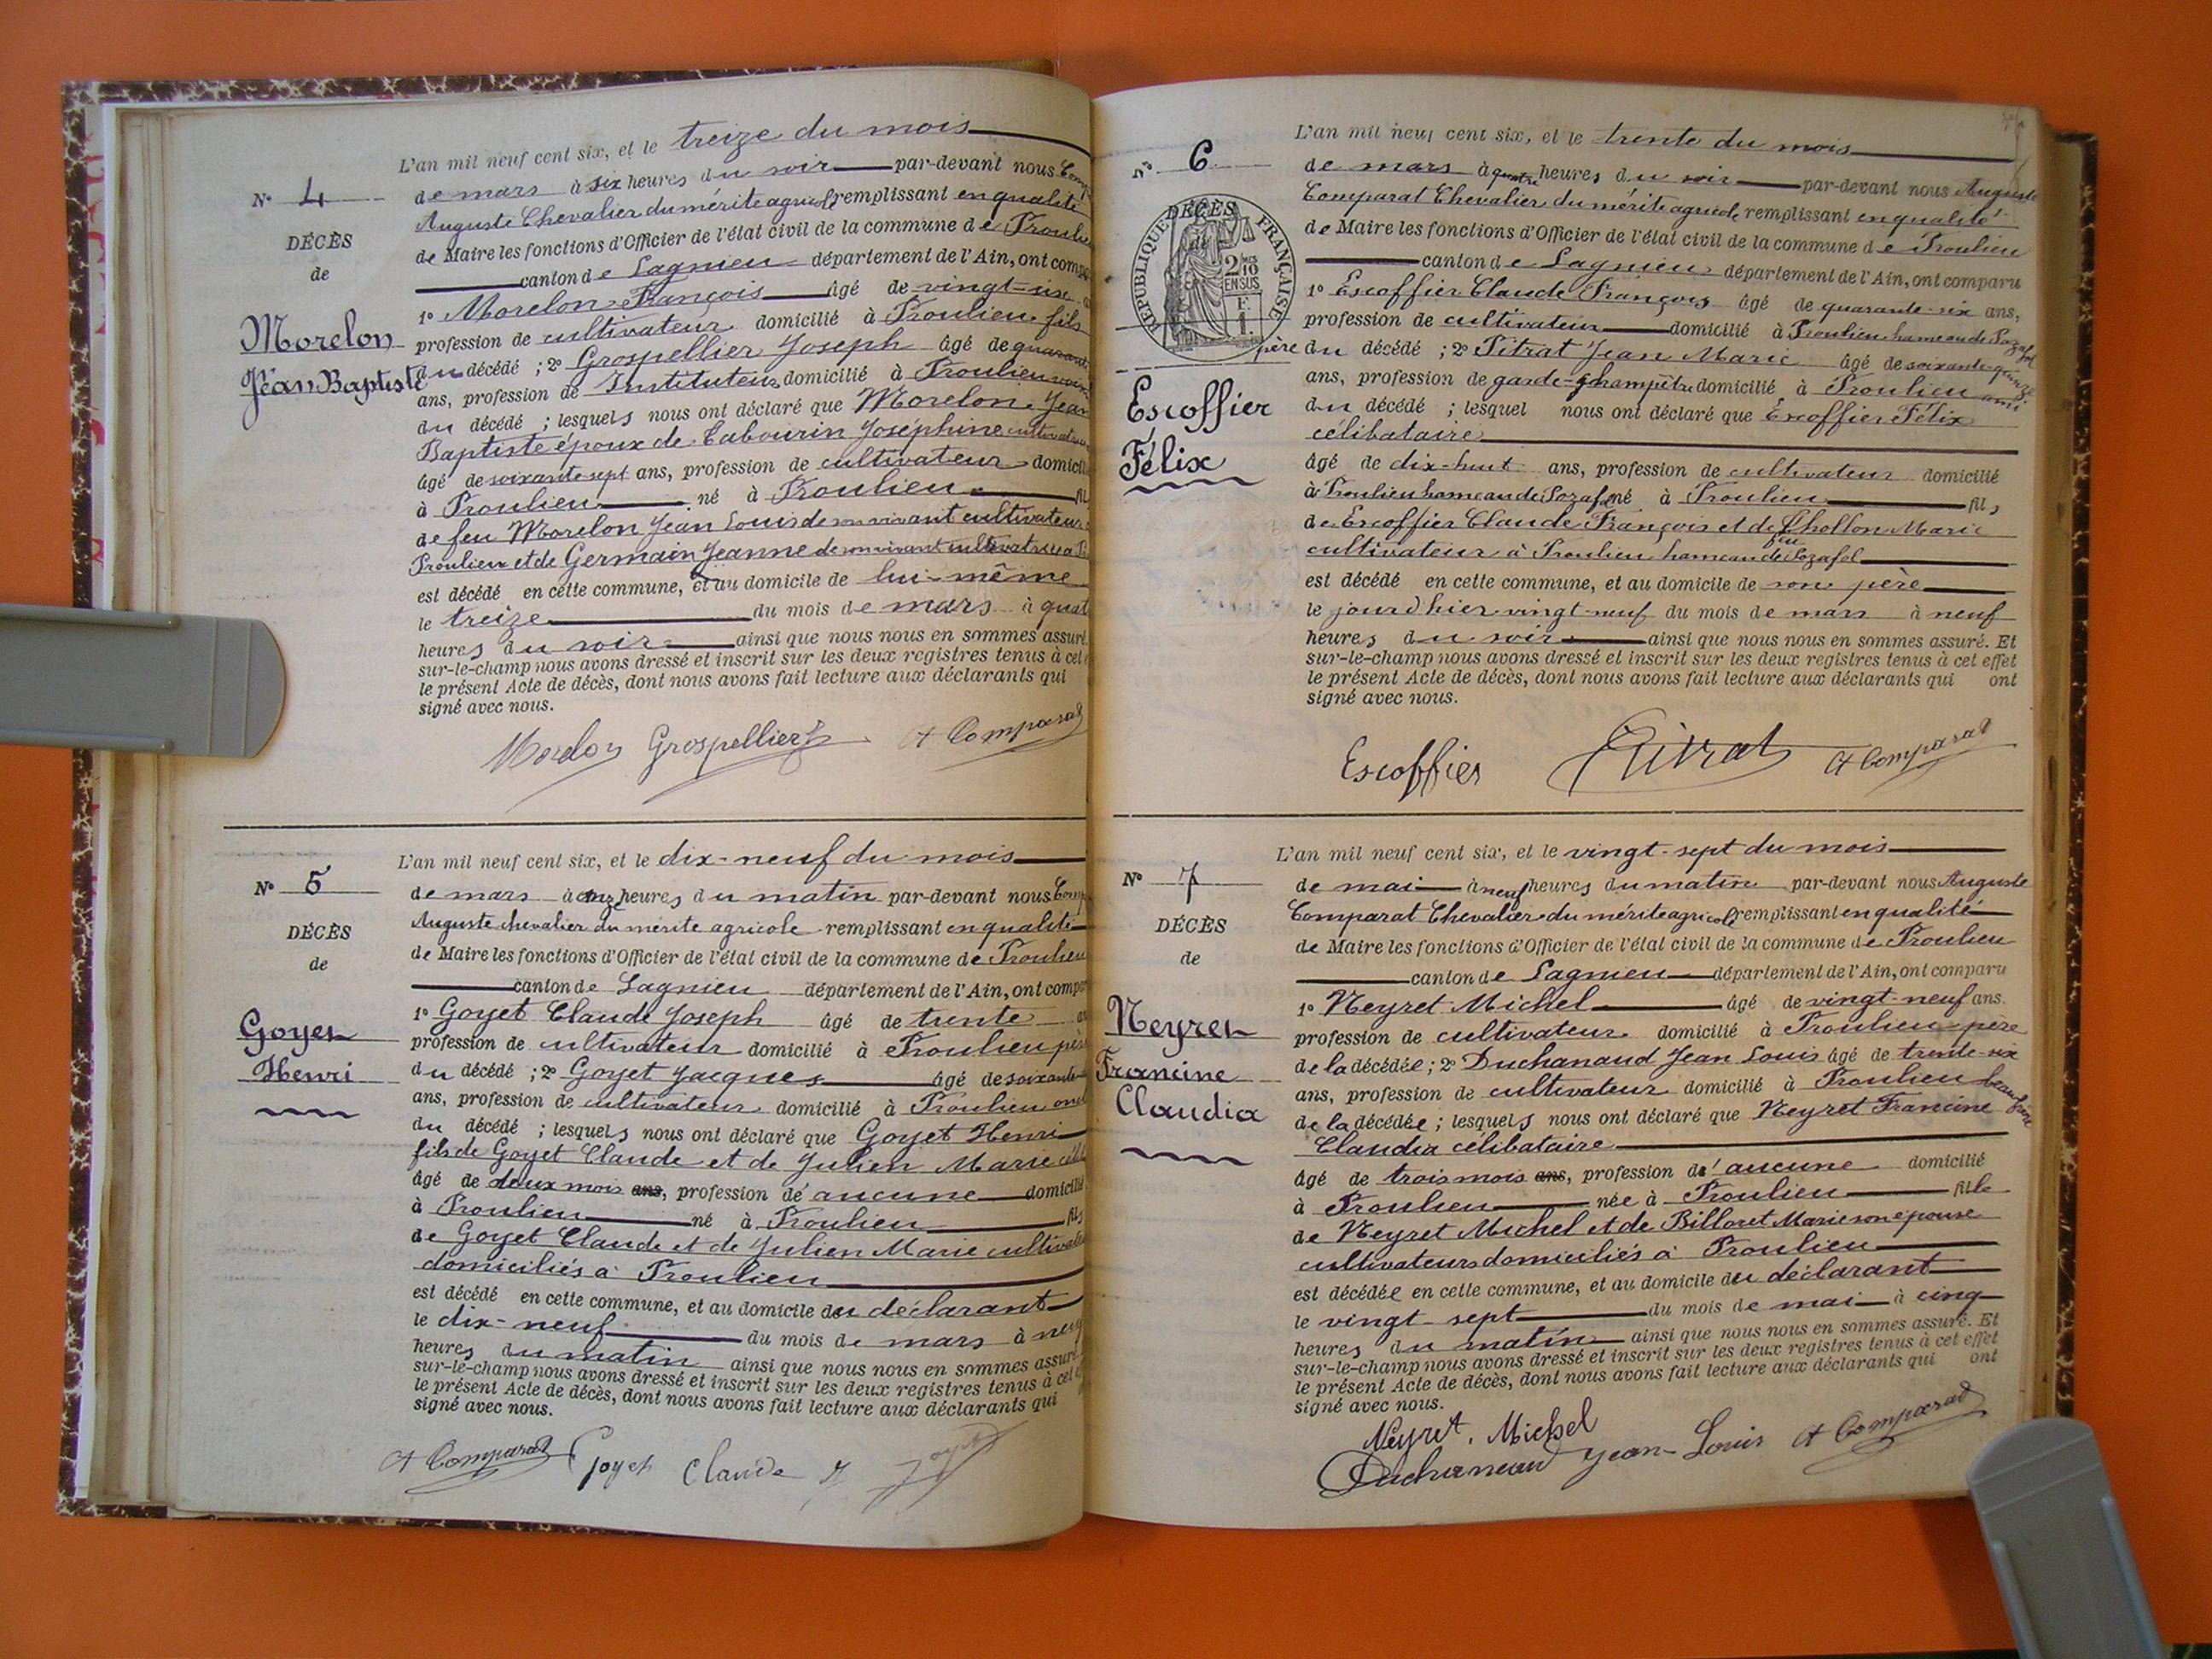 L'an mil neuf cent six, et le treize du mois
Nº 4
de mars à six heures du soir par-devant nous
Auguste Chevalier du mérite agricole remplissant en qualité
DÉCÈS
de Maire les fonctions d'Officier de l'état civil de la commune de
de
canton de Lagnieu département de l'Ain, ont
1º Morelon François âgé de vingt-six
Morelon
Jean Baptiste
profession de cultivateur domicilié à Proulieu fils
du décédé ; 2º Grospellier Joseph âgé de
ans, profession de Instituteur domicilié à Proulieu
du décédé ; lesquels nous ont déclaré que Morelon Jean
Baptiste époux de Cabourin Joséphine
âgé de soixante sept ans, profession de cultivateur
à Proulieu né à Proulieu
de feu Morelon Jean Louis de son vivant cultivateur
Proulieu et de Germain Jeanne de son vivant cultivatrice à
est décédé en cette commune, et au domicile de lui-même
le treize du mois de mars à
heures du soir ainsi que nous nous en sommes
sur-le-champ nous avons dressé et inscrit sur les deux registres tenus à cet
le présent Acte de décès, dont nous avons fait lecture aux déclarants qui
signé avec nous.
Grospellier A Comparat
L'an mil neuf cent six, et le dix-neuf du mois
Nº 5
de mars à onze heures du matin par-devant nous
Auguste chevalier du mérite agricole remplissant en qualité
DÉCÈS
de Maire les fonctions d'Officier de l'état civil de la commune de Proulieu
de
canton de Lagnieu département de l'Ain, ont
Goyet
Henri
1º Goyet Claude Joseph âgé de trente
profession de cultivateur domicilié à Proulieu
du décédé ; 2º Goyet Jacques âgé de
ans, profession de cultivateur domicilié à Proulieu
du décédé ; lesquels nous ont déclaré que Goyet Henri
fils de Goyet Claude et de Julien Marie
âgé de deux mois ans, profession dé aucune
à Proulieu né à Proulieu fils
de Goyet Claude et de Julien Marie
domiciliés à Proulieu
est décédé en cette commune, et au domicile du déclarant
le dix-neuf du mois de mars à
heures du matin ainsi que nous nous en sommes
sur-le-champ nous avons dressé et inscrit sur les deux registres tenus à cet
le présent Acte de décès, dont nous avons fait lecture aux déclarants qui
signé avec nous.
A Comparat Goyet Claude
L'an mil neuf cent six, et le trente du mois
Nº 6
de mars à quatre heures du soir par-devant nous Auguste
Comparat Chevalier du mérite agricole remplissant en qualité
de Maire les fonctions d'Officier de l'état civil de la commune de Proulieu
canton de Lagnieu département de l'Ain, ont comparu
DÉCÈS
de
RÉPUBLIQUE FRANÇAISE
2/10
EN SUS
1º Escoffier Claude François âgé de quarante-six ans,
profession de cultivateur domicilié à Proulieu hameau de Pozafol
père du décédé ; 2º Pitrat Jean Marie âgé de soixante-quinze
Escoffier
Félix
ans, profession de garde-champêtre domicilié à Proulieu ami
du décédé ; lesquel nous ont déclaré que Escoffier Félix
célibataire
âgé de dix-huit ans, profession de cultivateur domicilié
à Proulieu hameau de Pozafol né à Proulieu fils
de Escoffier Claude François et de Chollon Marie
cultivateur à Proulieu hameau de Pozafol
est décédé en cette commune, et au domicile de son père
le jour d'hier vingt-neuf du mois de mars à neuf
heures du soir ainsi que nous nous en sommes assuré. Et
sur-le-champ nous avons dressé et inscrit sur les deux registres tenus à cet effet
le présent Acte de décès, dont nous avons fait lecture aux déclarants qui ont
signé avec nous.
Escoffier Pitrat A Comparat
L'an mil neuf cent six, et le vingt-sept du mois
Nº 7
de mai à neuf heures du matin par-devant nous Auguste
Comparat Chevalier du mérite agricole remplissant en qualité
DÉCÈS
de Maire les fonctions d'Officier de l'état civil de la commune de Proulieu
de
canton de Lagnieu département de l'Ain, ont comparu
Neyret
Francine
Claudia
1º Neyret Michel âgé de vingt-neuf ans.
profession de cultivateur domicilié à Proulieu père
de la décédée ; 2º Duchanaud Jean Louis âgé de trente-six
ans, profession de cultivateur domicilié à Proulieu beau frère
de la décédée ; lesquels nous ont déclaré que Neyret Francine
Claudia célibataire
âgé de trois mois ans, profession d' aucune domicilié
à Proulieu née à Proulieu fille
de Neyret Michel et de Billoret Marie son épouse
cultivateurs domiciliés à Proulieu
est décédée en cette commune, et au domicile du déclarant
le vingt-sept du mois de mai à cinq
heures du matin ainsi que nous nous en sommes assuré. Et
sur-le-champ nous avons dressé et inscrit sur les deux registres tenus à cet effet
le présent Acte de décès, dont nous avons fait lecture aux déclarants qui ont
signé avec nous.
Neyret. Michel
Jean-Louis A Comparat